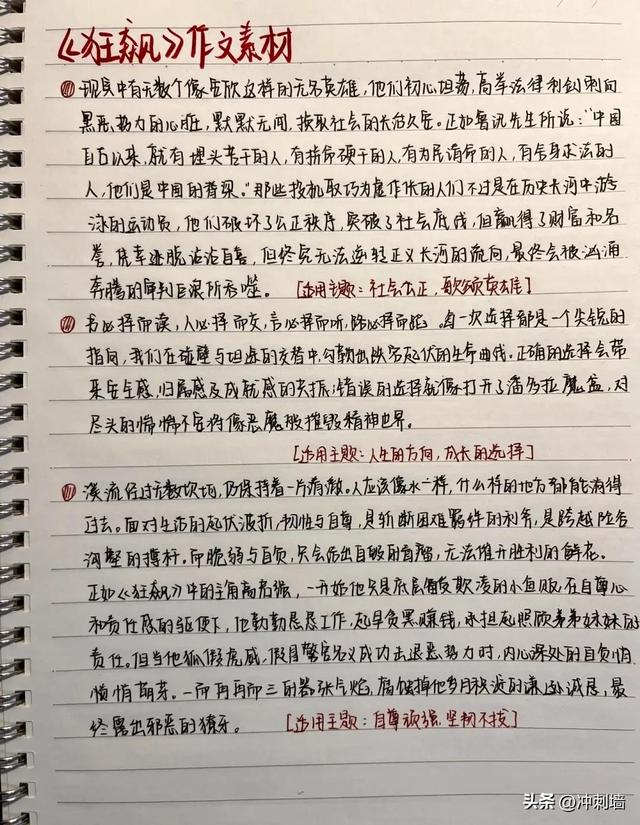 《狂飙》作文素材
① 现实中有无数个像安欣这样的无名英雄，他们初心坦荡，高举法律利剑刺向
黑恶势力的心脏，默默无闻，换取社会的长治久安。正如鲁迅先生所说："中国
自古以来，就有埋头苦干的人，有拼命硬干的人，有为民请命的人，有舍身求法的
人，他们是中国的脊梁。"那些投机取巧为虎作伥的人们不过是在历史长河中游
泳的运动员，他们破坏了公正秩序，突破了社会底线，但赢得了财富和名
誉，凭幸逃脱沾沾自喜，但终究无法逆转正义长河的流向，最终会被汹涌
奔腾的审判巨浪所吞噬。 [适用主题：社会公正，歌颂英雄]
② 书必择而读，人必择而交，言必择而听，路必择而蹈。每一次选择都是一个尖锐的
指向，我们在碰壁与坦途的交替中，勾勒出跌宕起伏的生命曲线。正确的选择会带
来安全感，归属感及成就感的夹抚；错误的选择就像打开了潘多拉魔盒，对
尽头的惴惴不安将像恶魔般摧毁精神世界。
[适用主题：人生的方向，成长的选择]
③ 溪流经过无数坎坷，仍保持着一片清澈。人应该像水一样，什么样的地方都能流得
过去。面对生活的起伏波折，韧性与自尊，是斩断困难羁绊的利斧，是跨越险谷
沟壑的撑杆。而脆弱与自负，只会活出自毁的，无法催开胜利的鲜花。
正如《狂飙》中的主角高启强，一开始他只是底层備受欺凌的小鱼贩，在自尊心
和责任感的驱使下，他勤勤恳恳工作，起早贪黑赚钱，承担起照顾弟弟妹妹的
责任。但当他狐假虎威，假冒警官名义成功击退恶势力时，内心深处的自负悄
悄萌芽。一而再再而三的嚣张气焰，腐蚀掉他岁月积淀的谦逊诚恳，最
终露出邪恶的獠牙。 [适用主题：自尊顽强，坚韧不拔]
头条 @冲刺墙